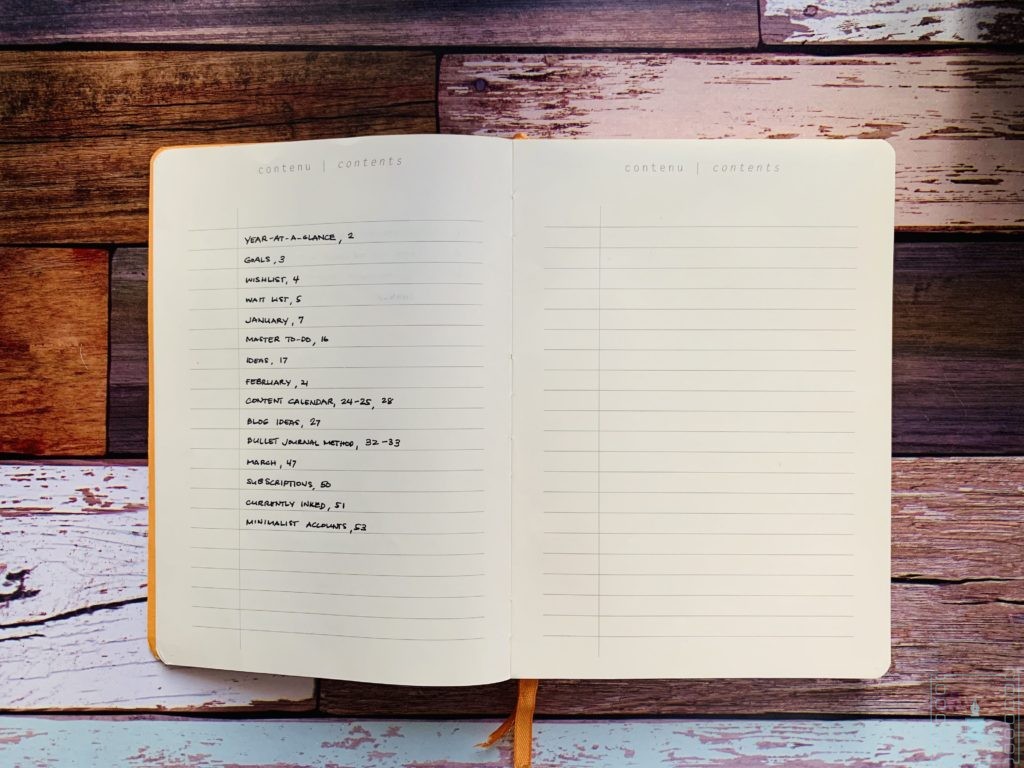 contenu | contents
YEAR-AT-A-GLANCE, 2
GOALS, 3
WISHLIST, 4
WAIT LIST, 5
JANUARY, 7
MASTER TO-DO, 16
IDEAS, 17
FEBRUARY, 21
CONTENT CALENDAR, 24-25, 28
BLOG IDEAS, 27
BULLET JOURNAL METHOD, 32-33
MARCH, 47
SUBSCRIPTIONS, 50
CURRENTLY INKED, 51
MINIMALIST ACCOUNTS, 53
contenu | contents